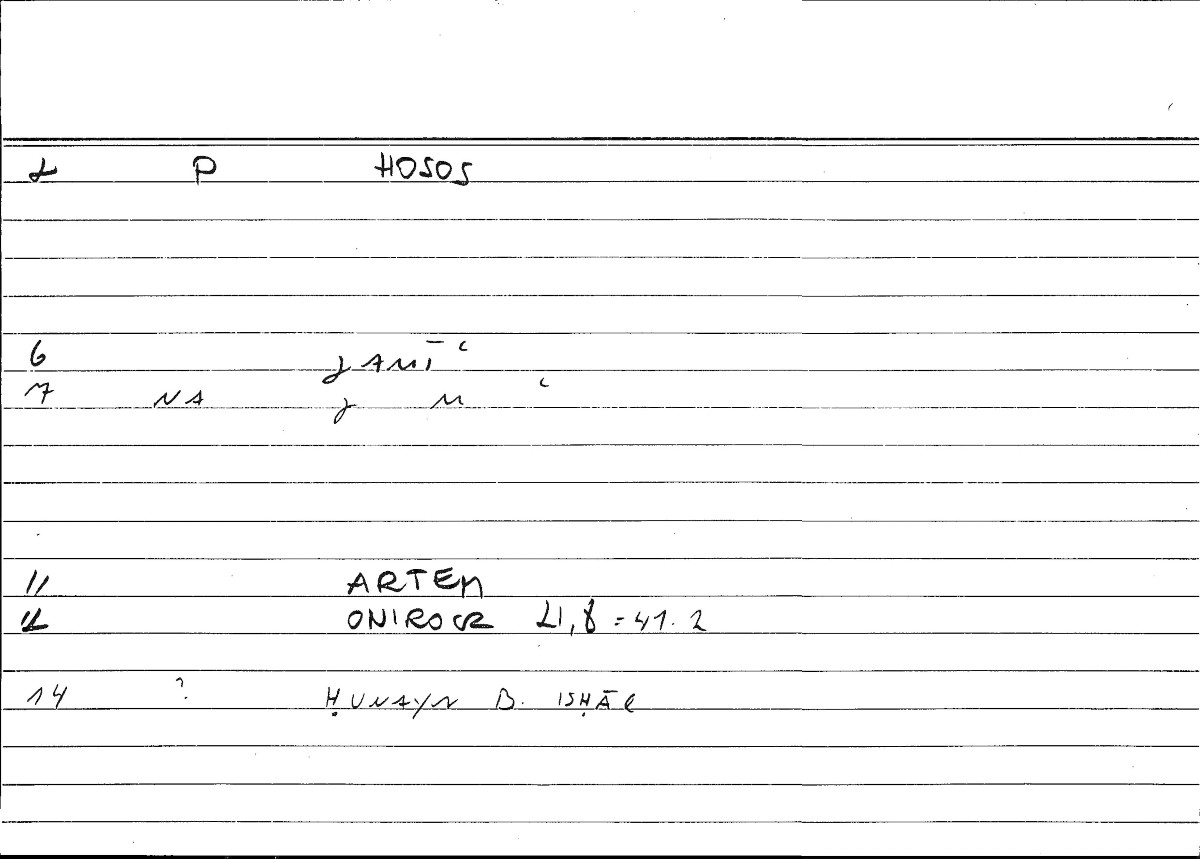 2 P HOSOS
6 JAMĪʿ
7 NA J M ʿ
11 ARTEM
12 ONIROCR 21,8 = 41.2
14 ? ḤUNAYN B. ISḤĀQ